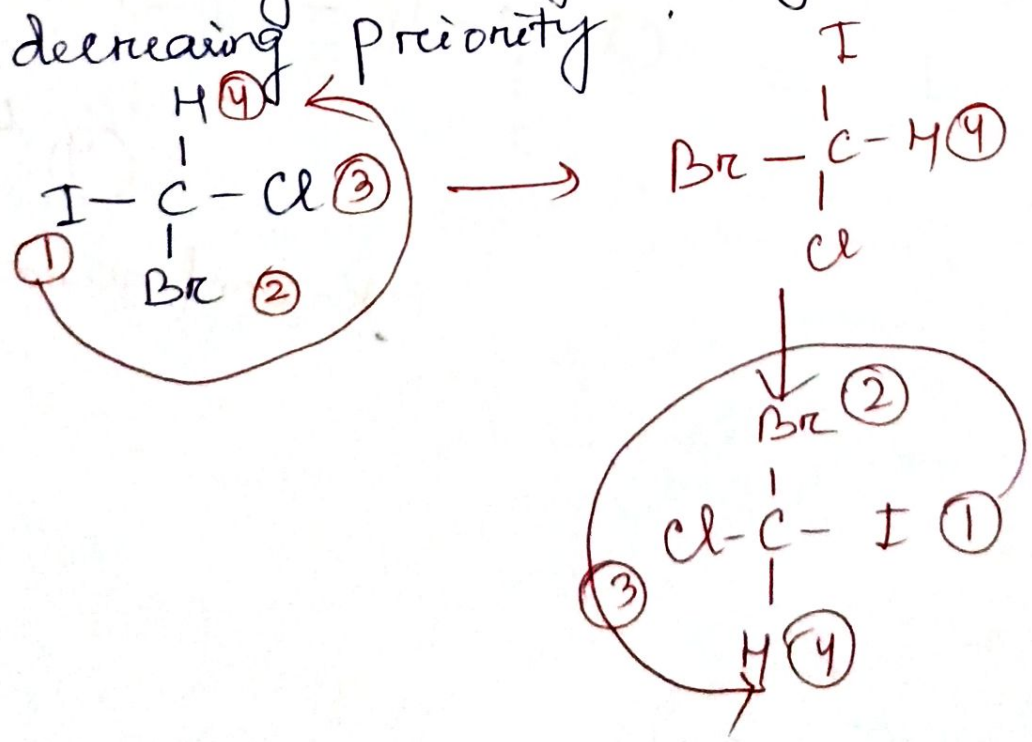 decreasing priority
H ④
I – C – Cl ③
①
Br ②
I
Br – C – H ④
Cl
Br ②
Cl – C – I ①
③
H ④